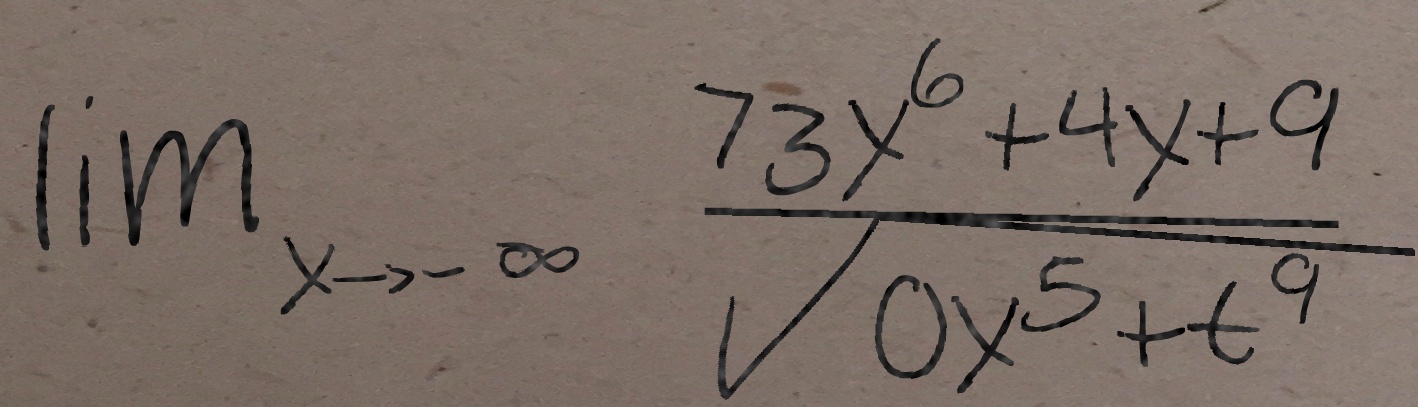 lim_{x→-∞} \frac{73x^6+4x+9}{\sqrt{0x^5+t^9}}